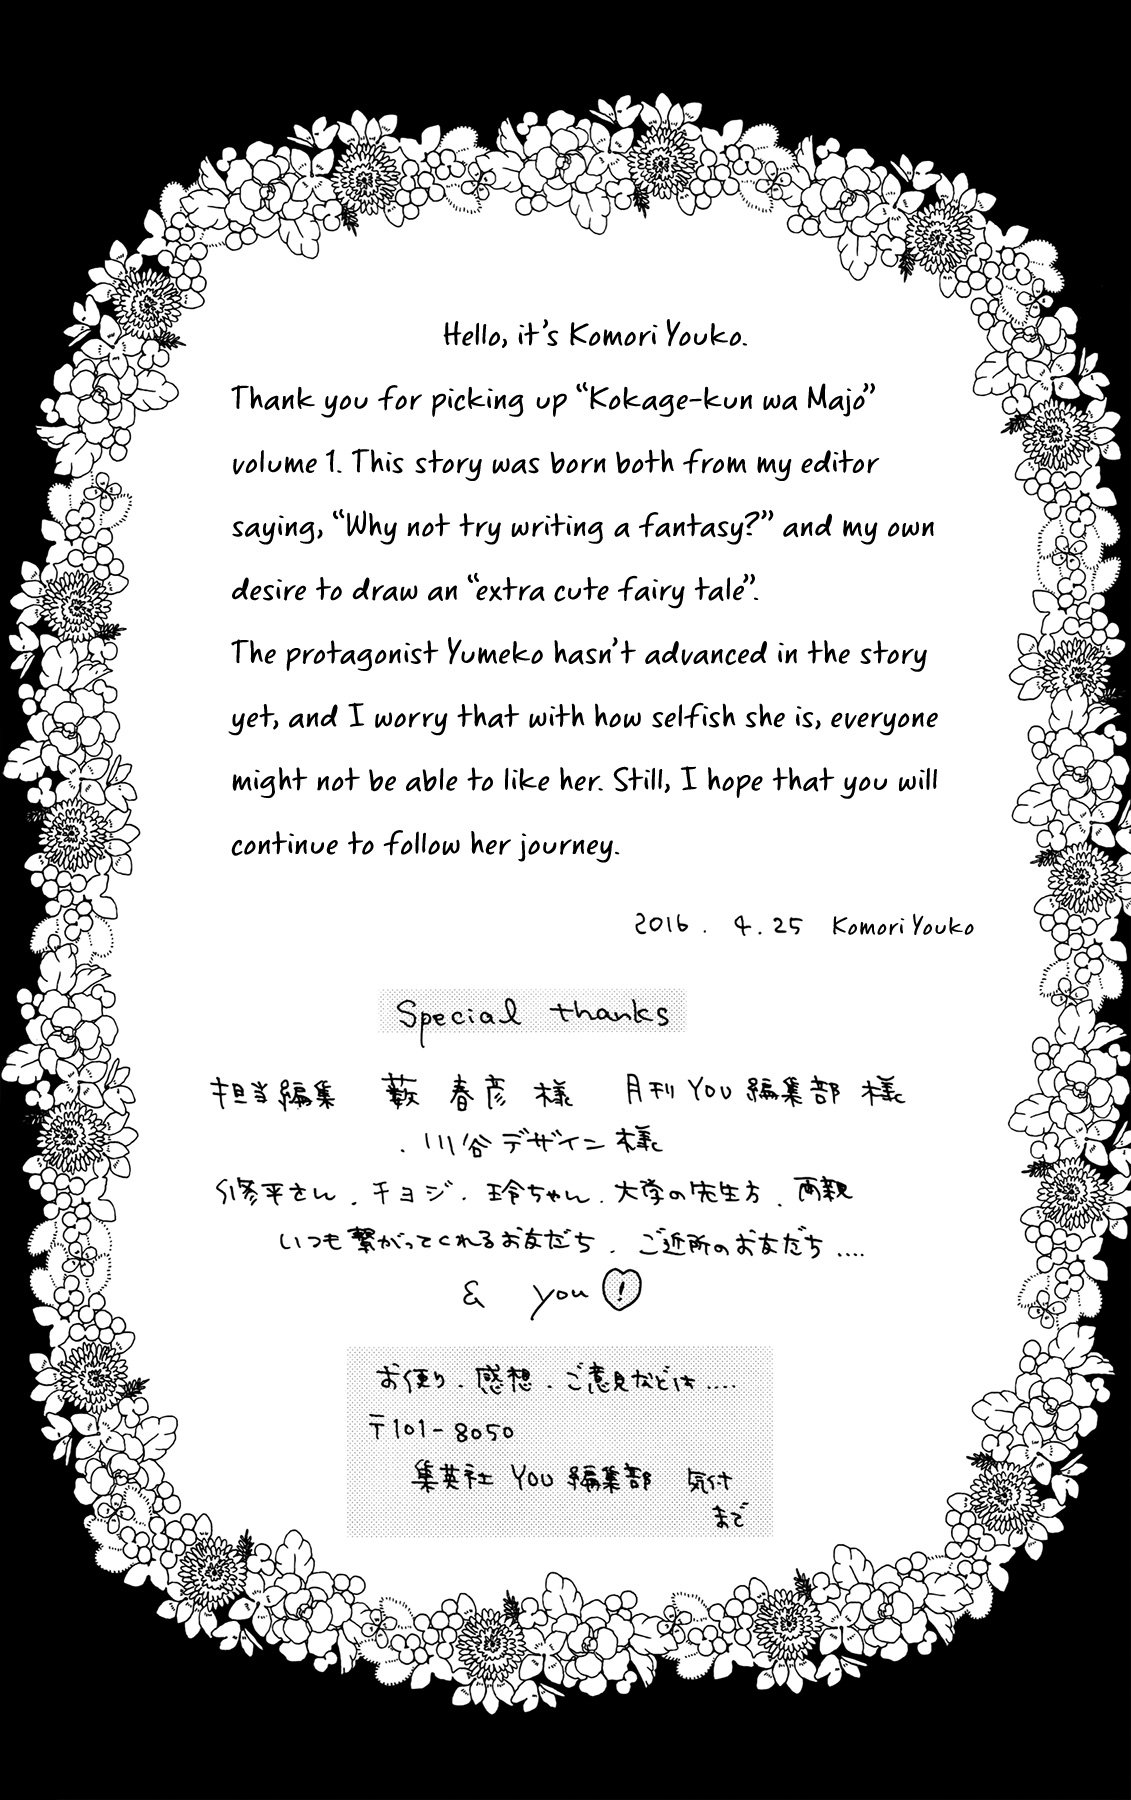 Hello, it's Komori Youko.
Thank you for picking up "Kokage-kun wa Majo"
volume 1. This story was born both from my editor
saying, "Why not try writing a fantasy?" and my own
desire to draw an "extra cute fairy tale".
The protagonist Yumeko hasn't advanced in the story
yet, and I worry that with how selfish she is, everyone
might not be able to like her. Still, I hope that you will
continue to follow her journey.
2016. 4.25 Komori Youko
Special thanks
担当編集 薮 春彦 様 月刊YOU編集部 様
.川谷デザイン様
修平さん.チョジ.玲ちゃん.大学の先生方.両親
いつも繋がってくれるお友だち.ご近所のお友だち....
& you!
お便り.感想.ご意見などは....
〒101-8050
集英社 YOU 編集部 気付
まで